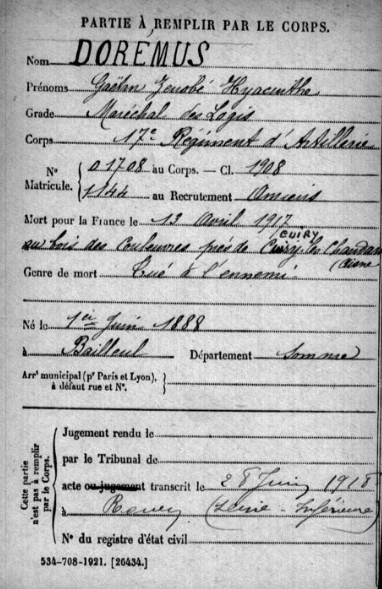 PARTIE À REMPLIR PAR LE CORPS.
Nom DOREMUS
Prénoms Gaëtan Zenobé Hyacinthe
Grade Maréchal des Logis
Corps 17e Régiment d'Artillerie
N° Matricule. { 01708 au Corps. — Cl. 1908
1144 au Recrutement Amiens
Mort pour la France le 13 Avril 1917
CUIRY
au bois des Couleuvres près de Cuiry les Chaudar
(Aisne
Genre de mort Tué à l'ennemi
Né le 1er Juin 1888
à Bailleul Département Somme
Arrt municipal (pr Paris et Lyon), à défaut rue et N°. }
Cette partie n'est pas à remplir par le Corps.
Jugement rendu le
par le Tribunal de
acte ou jugement transcrit le 28 Juin 1918
à Rouen (Seine-Inférieure)
N° du registre d'état civil
534-708-1921. [26434.]